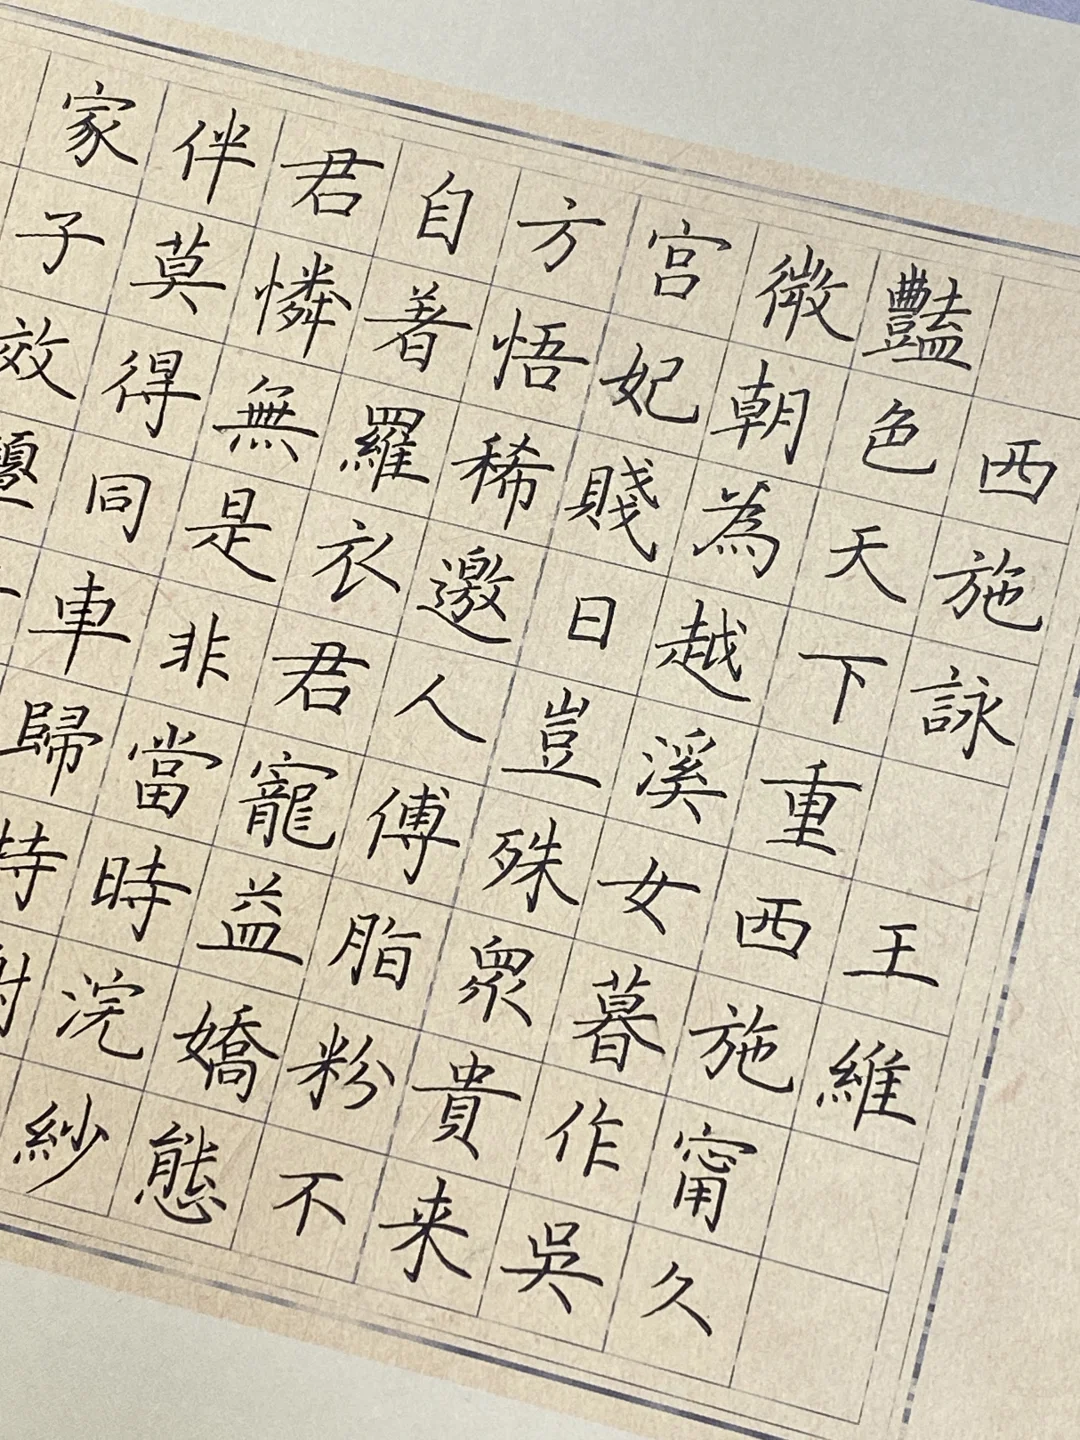 西施詠 王維
豔色天下重西施甯久
微朝為越溪女暮作吳
宮妃賤日豈殊眾貴来
方悟稀邀人傅脂粉不
自著羅衣君寵益嬌態
君憐無是非當時浣紗
伴莫得同車歸持
家子效